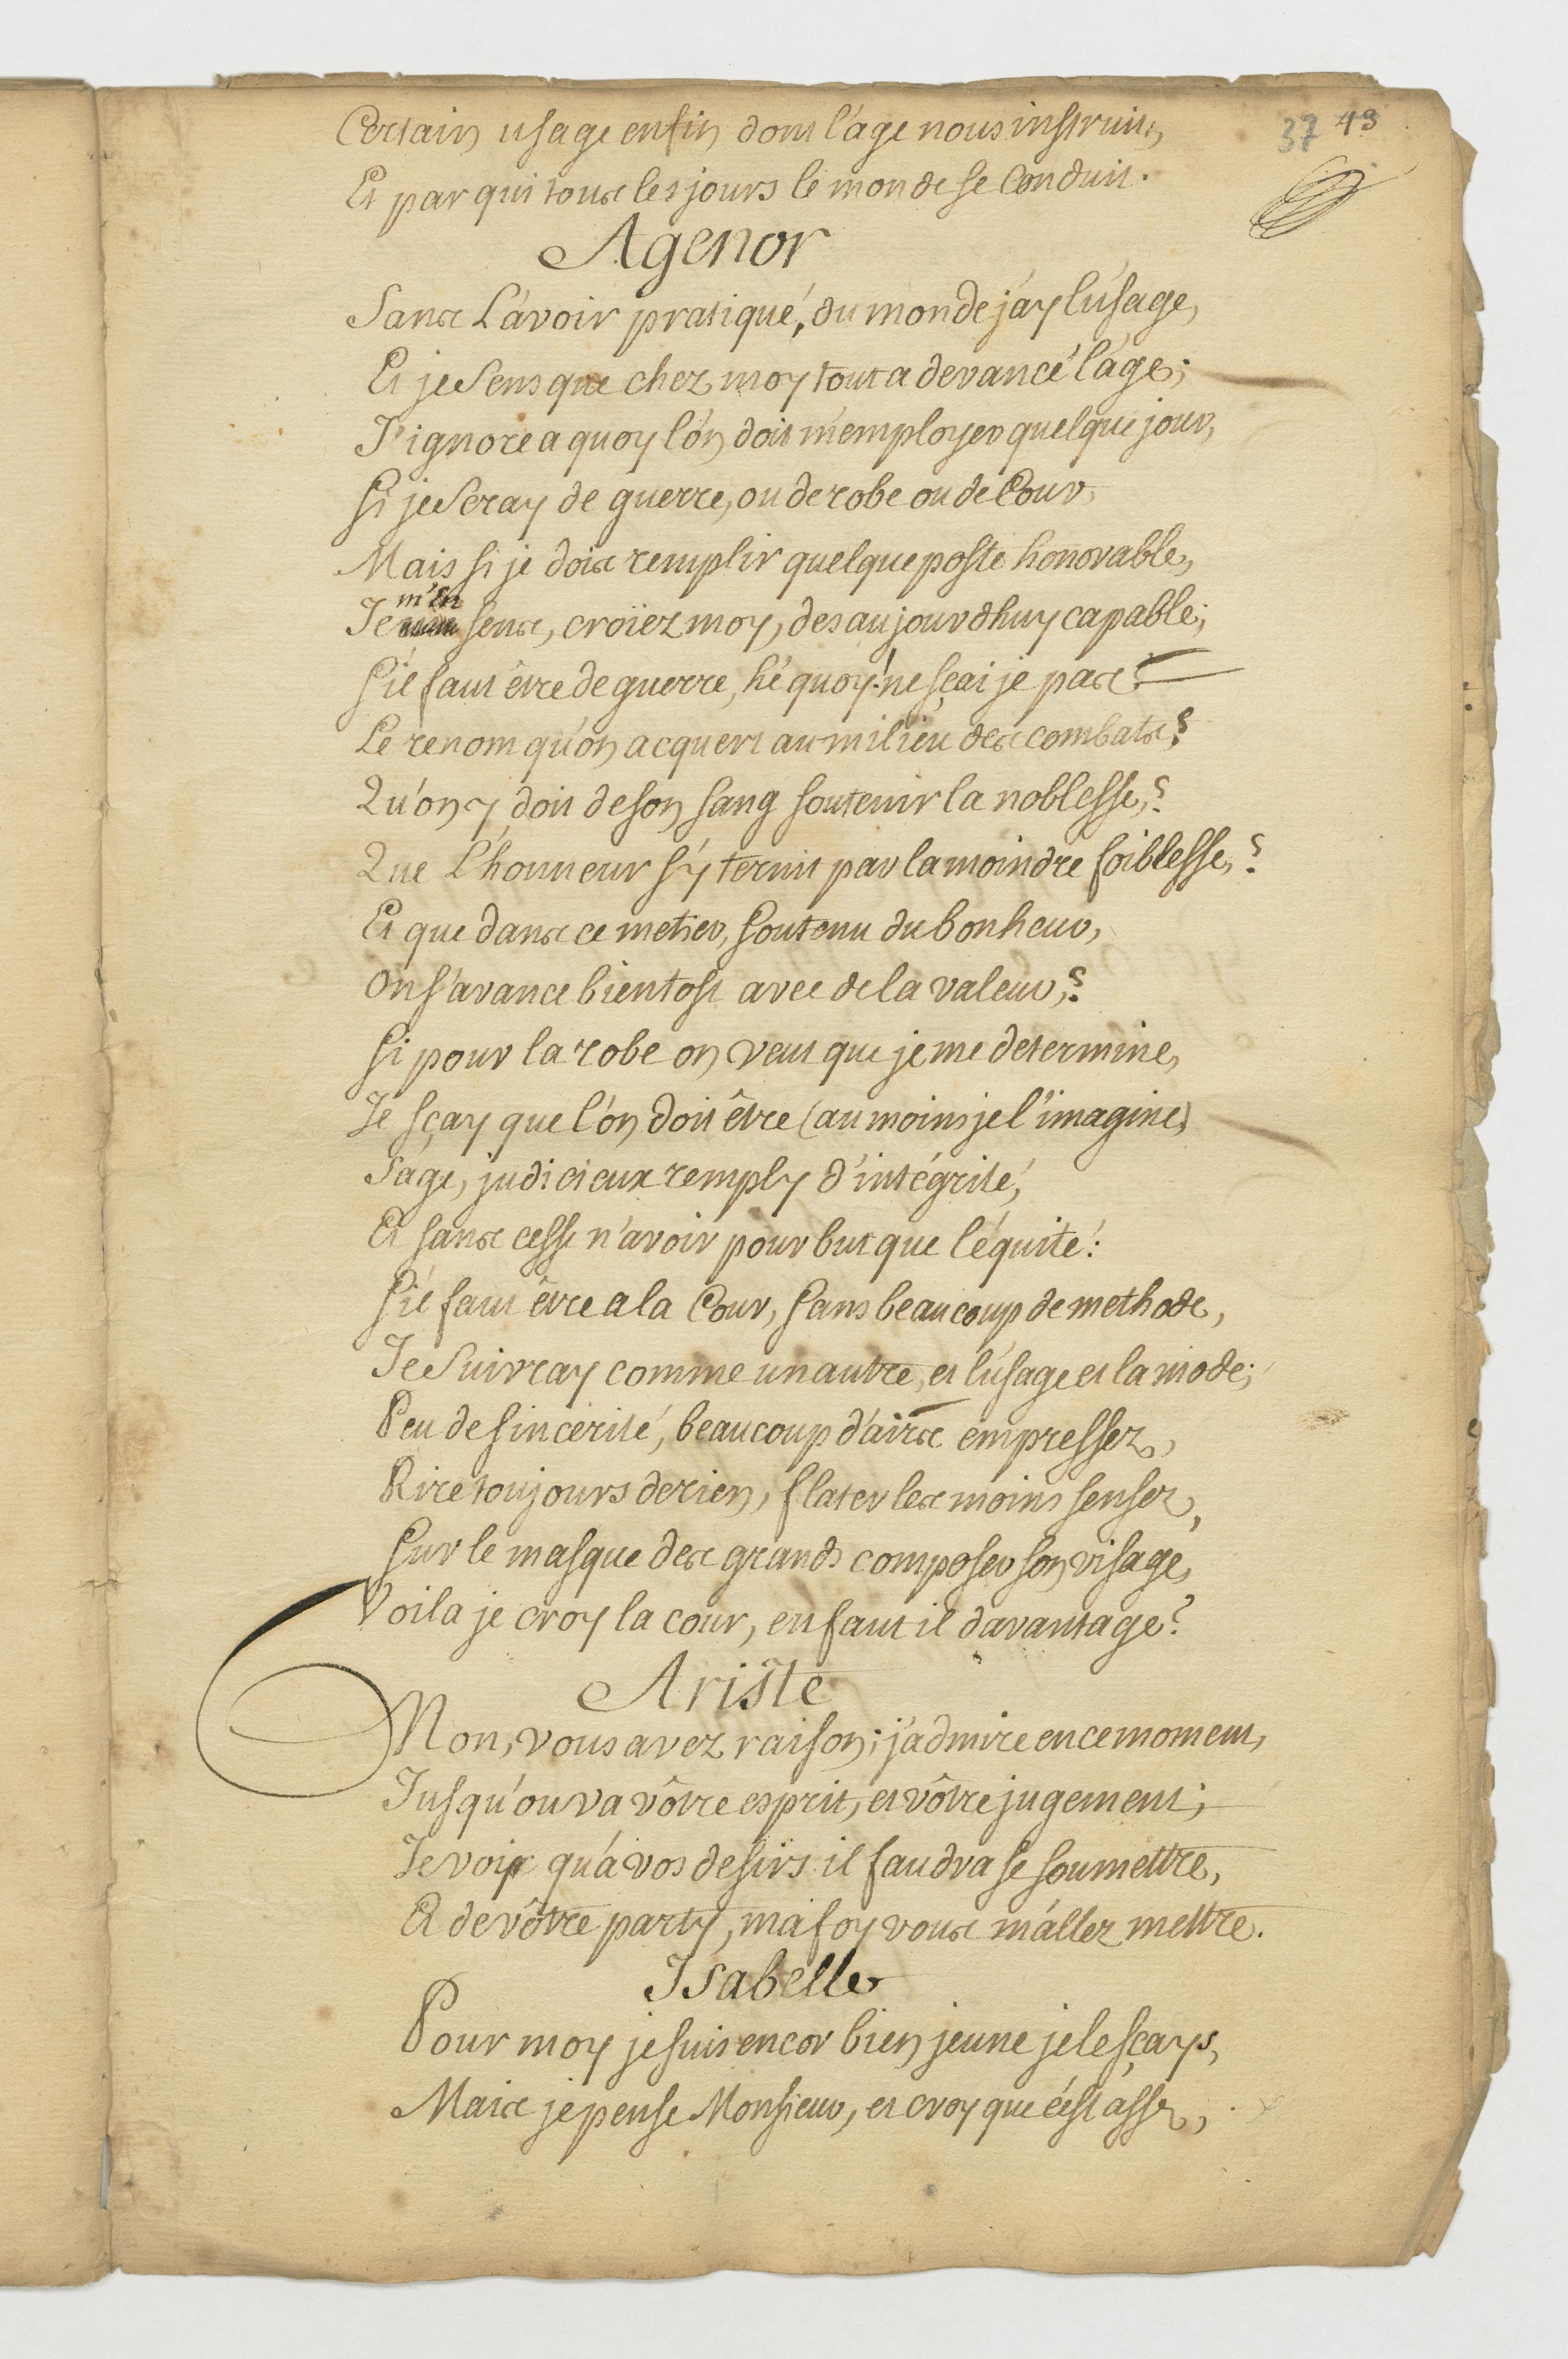 37 43
Certain usage enfin dont l'age nous instruit,
Et par qui tous les jours le monde se Conduit.
Agenor
Sans L'avoir pratiqué, du monde j'ay l'usage,
Et je Sens que chez moy tout a devancé l'age;
J'ignore a quoy l'on doit m'employer quelque jour,
Si je Seray de guerre, ou de robe ou de Cour,
Mais si je dois remplir quelque poste honnorable,
Je m'en sens, croïez moy, des aujourdhuy capable;
S'il faut être de guerre, hé quoy! ne sçai je pas
Le renom qu'on acquert au milieu des combats?
Qu'on y doit de son sang soutenir la noblesse,?
Que L'honneur s'y ternit par la moindre foiblesse,?
Et que dans ce metier, soutenu du bonheur,
On s'avance bientost avec de la valeur,?
Si pour la robe on veut que je me determine,
Je sçay que l'on doit être (au moins je l'imagine)
Sage, judicieux remply d'intégrité,
Et sans cesse n'avoir pour but que l'équité:
S'il faut être a la Cour, sans beaucoup de methode,
Je Suivray comme un autre, et l'usage et la mode;
Peu de sincerité, beaucoup d'airs empressez,
Rire toujours de rien, flater les moins sensez,
Sur le masque des grands composer son visage,
Voila je croy la cour, en faut il davantage?
Ariste
Non, vous avez raison; j'admire en ce moment,
Jusqu'ou va vôtre esprit, et vôtre jugement;
Je vois qu'a vos desirs il faudra se soumettre,
Et de vôtre party, ma foy vous m'allez mettre.
Isabelle
Pour moy je suis encor bien jeune je le sçays,
Mais je pense Monsieur, et croy que c'est assez,